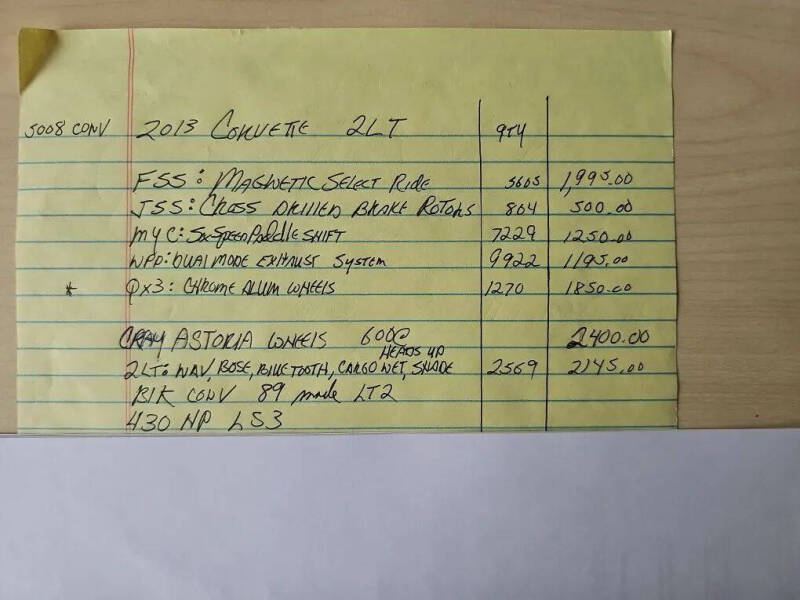 5008 CONV 2013 CORVETTE 2LT QTY
FSS: MAGNETIC SELECT RIDE 5605 1,995.00
J55: CROSS DRILLED BRAKE ROTORS 804 500.00
MYC: SIX SPEED PADDLE SHIFT 7229 1250.00
NPP: DUAL MODE EXHAUST SYSTEM 9922 1195.00
* QX3: CHROME ALUM WHEELS 1270 1850.00
CRAY ASTORIA WHEELS 600@ 2400.00
HEADS UP
2LT: NAV, BOSE, BLUETOOTH, CARGO NET, SHADE 2569 2145.00
BLK CONV 89 made LT2
430 HP LS3